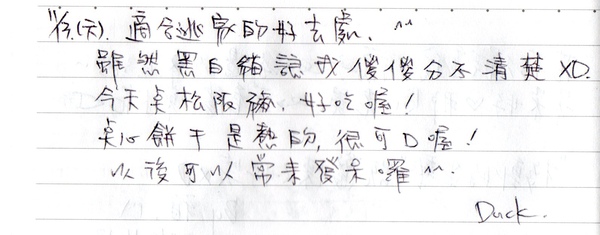 11/3.(六). 適合逃家的好去處. ^^
雖然黑白貓讓我傻傻分不清楚XD.
今天点松阪豬, 好吃喔!
点心餅干是熱的, 很可口喔!
以後可以常来發呆囉^^.
Duck.